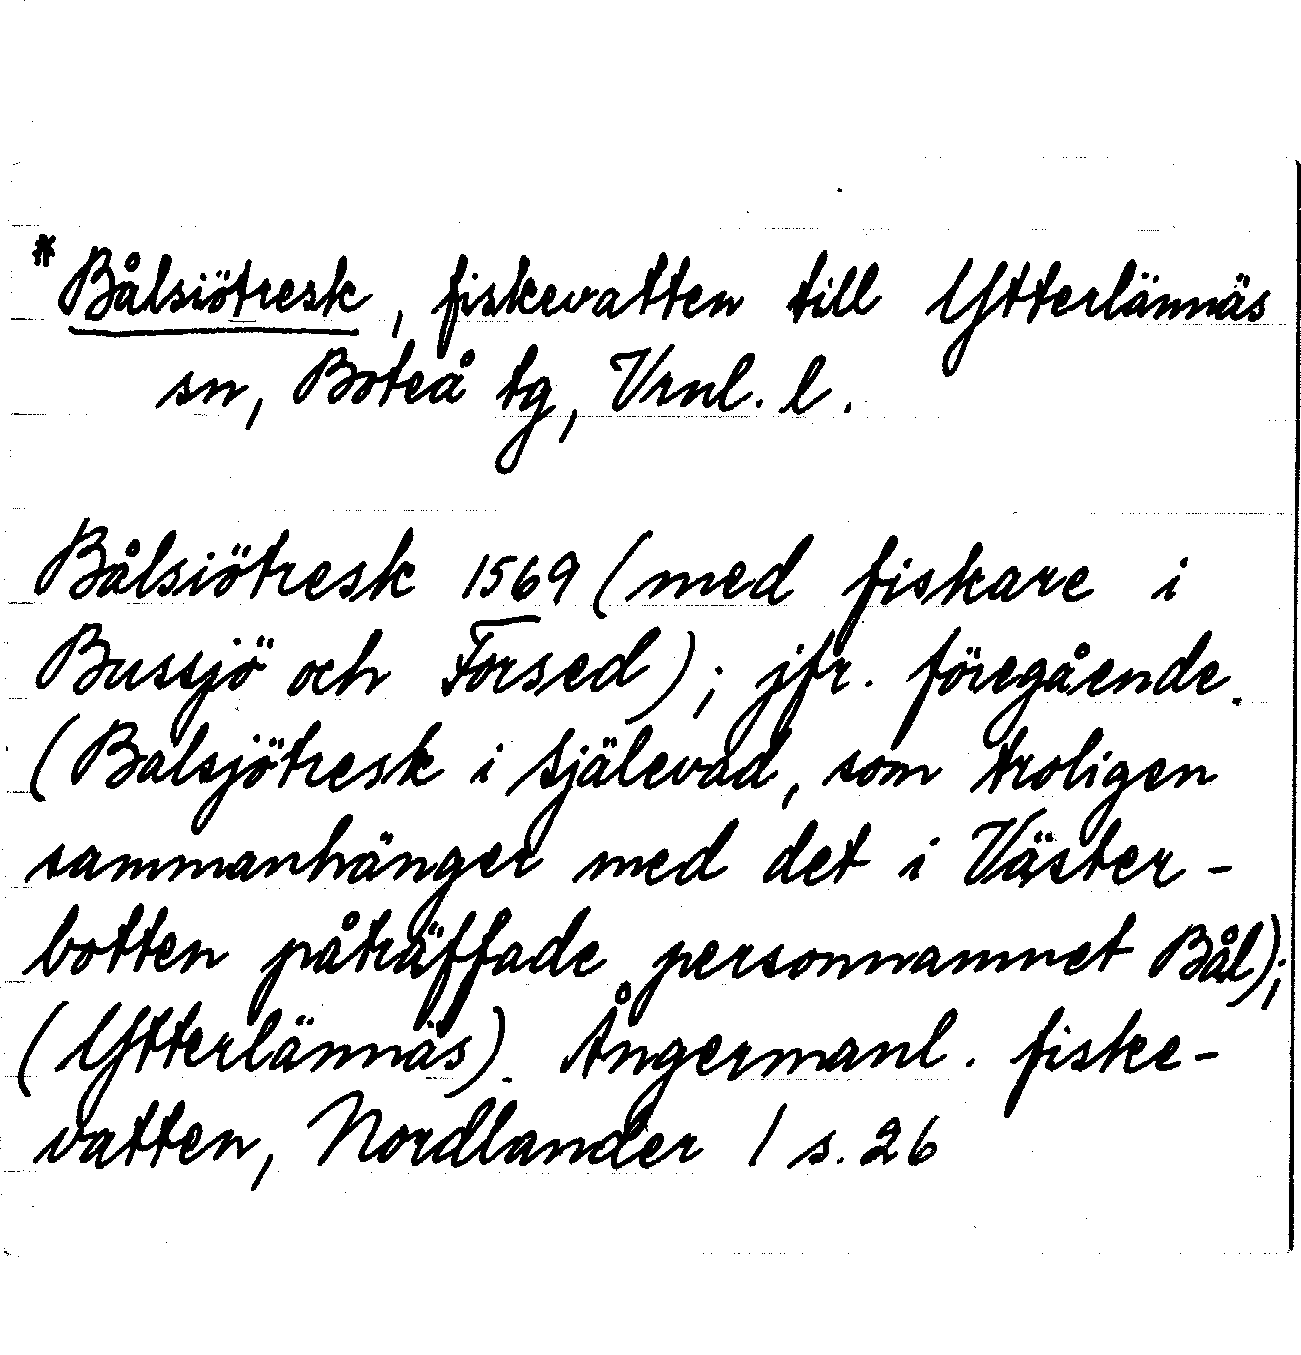 * Bålsiötresk, fiskevatten till Ytterlännäs
sn, Boteå tg, Vrnl. l.
Bålsiötresk 1569 (med fiskare i
Bussjö och Forsed); jfr. föregående.
(Balsjötresk i Själevad, som troligen
sammanhänger med det i Väster-
botten påträffade personnamnet Bål);
(Ytterlännäs). Ångermanl. fiske-
vatten, Nordlander 1 s. 26